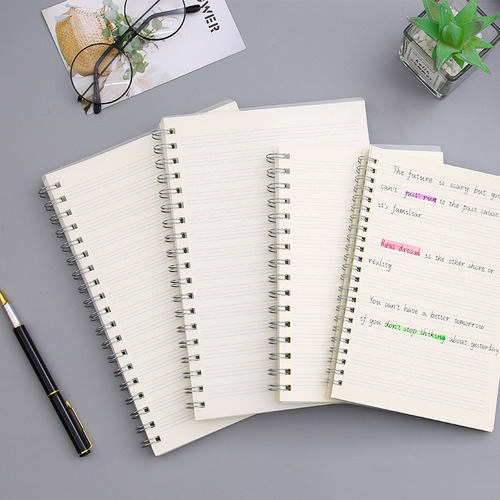 OWER
The future is scary but you
can't just run to the past cause
it's familiar.
Real dream is the other shore or
reality
You can't have a better tomorrow
if you don't stop thinking about yesterday